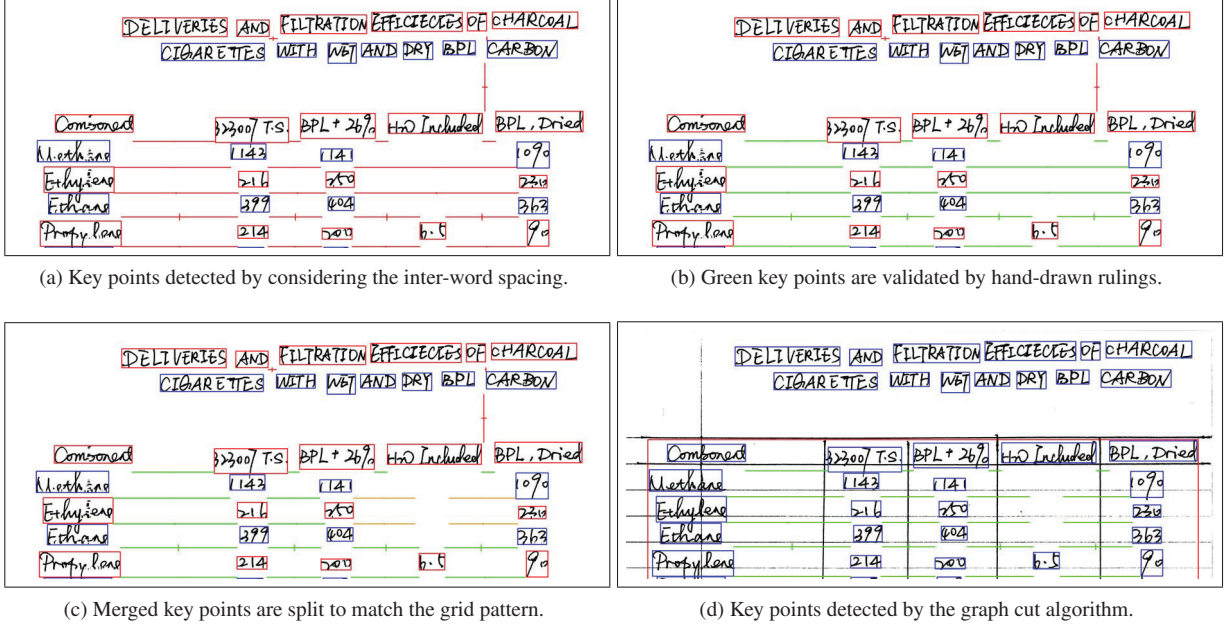 DELIVERIES AND FILTRATION EFFICIECIES OF CHARCOAL
CIGARETTES WITH WET AND DRY BPL CARBON
Component 32300/ T.S. BPL + 26% H2O Included BPL, Dried
Methane 1143 1141 1090
Ethylene 216 250 230
Ethane 399 404 363
Propylene 214 200 6.5 90
(a) Key points detected by considering the inter-word spacing.
DELIVERIES AND FILTRATION EFFICIECIES OF CHARCOAL
CIGARETTES WITH WET AND DRY BPL CARBON
Component 32300/ T.S. BPL + 26% H2O Included BPL, Dried
Methane 1143 1141 1090
Ethylene 216 250 230
Ethane 399 404 363
Propylene 214 200 6.5 90
(b) Green key points are validated by hand-drawn rulings.
DELIVERIES AND FILTRATION EFFICIECIES OF CHARCOAL
CIGARETTES WITH WET AND DRY BPL CARBON
Component 32300/ T.S. BPL + 26% H2O Included BPL, Dried
Methane 1143 1141 1090
Ethylene 216 250 230
Ethane 399 404 363
Propylene 214 200 6.5 90
(c) Merged key points are split to match the grid pattern.
DELIVERIES AND FILTRATION EFFICIECIES OF CHARCOAL
CIGARETTES WITH WET AND DRY BPL CARBON
Component 32300/ T.S. BPL + 26% H2O Included BPL, Dried
Methane 1143 1141 1090
Ethylene 216 250 230
Ethane 399 404 363
Propylene 214 200 6.5 90
(d) Key points detected by the graph cut algorithm.